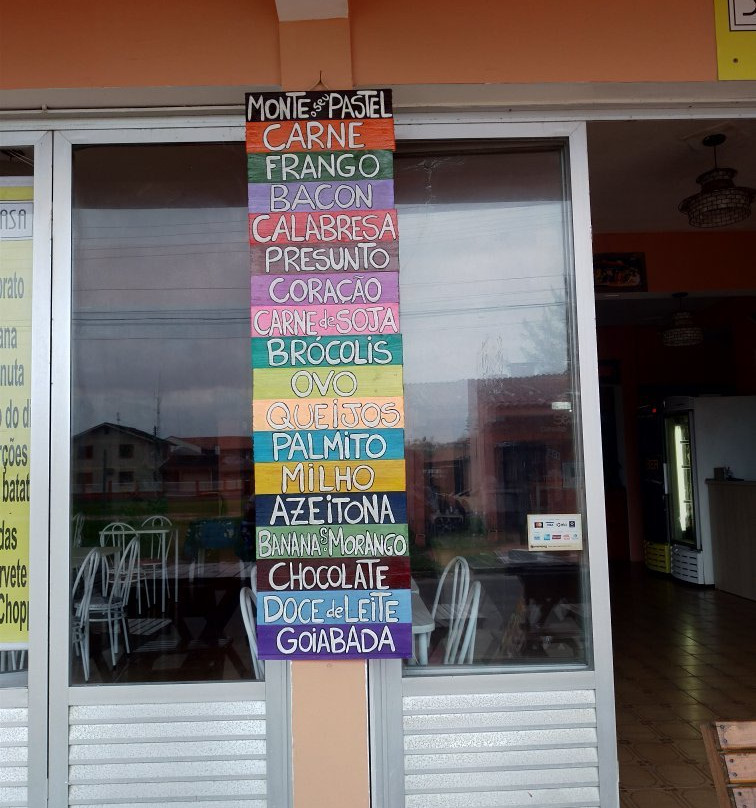 MONTE o seu PASTEL
CARNE
FRANGO
BACON
CALABRESA
PRESUNTO
CORAÇÃO
CARNE de SOJA
BRÓCOLIS
OVO
QUEIJOS
PALMITO
MILHO
AZEITONA
BANANA S MORANGO
CHOCOLATE
DOCE de LEITE
GOIABADA
ASA
prato
ana
nuta
o do d
rções
batat
das
rvete
Chop